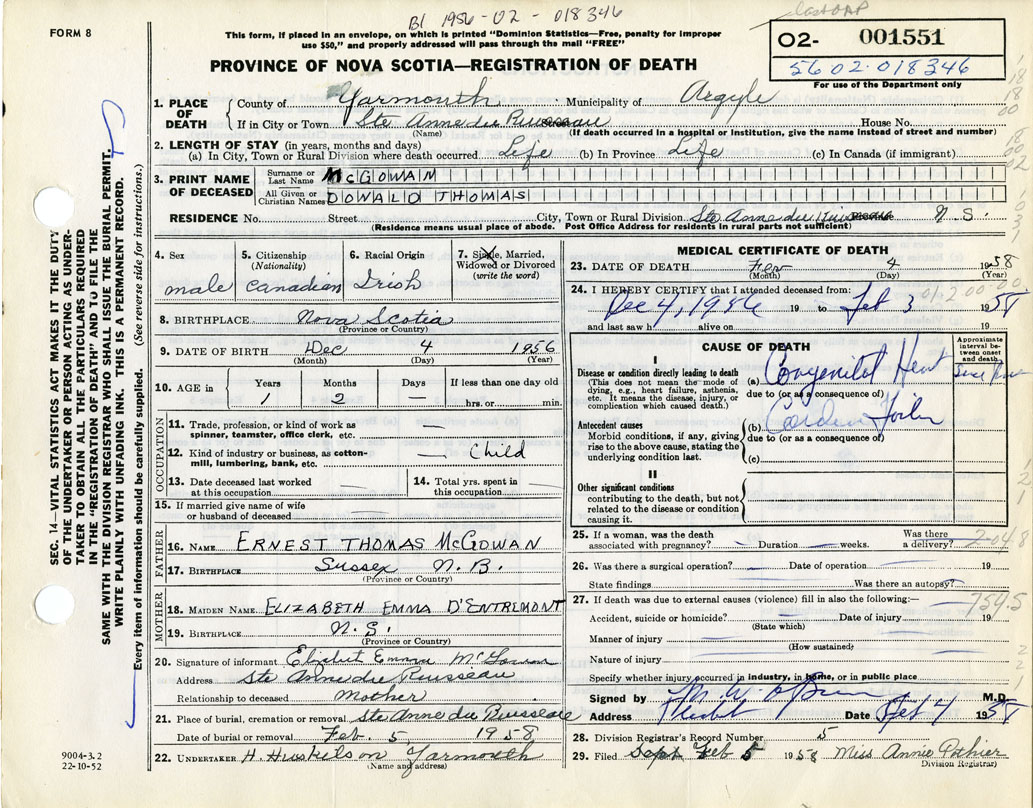 FORM 8
B1 1956-02-018346
This form, if placed in an envelope, on which is printed "Dominion Statistics—Free, penalty for improper
use $50," and properly addressed will pass through the mail "FREE"
02- 001551
56 02-018346
For use of the Department only
PROVINCE OF NOVA SCOTIA—REGISTRATION OF DEATH
1. PLACE OF DEATH County of Yarmouth Municipality of Argyle
If in City or Town Ste Anne du Ruisseau House No.
(Name) (If death occurred in a hospital or institution, give the name instead of street and number)
2. LENGTH OF STAY (in years, months and days)
(a) In City, Town or Rural Division where death occurred Life (b) In Province Life (c) In Canada (if immigrant)
3. PRINT NAME OF DECEASED Surname or Last Name McGOWAN
All Given or Christian Names DONALD THOMAS
RESIDENCE No. Street City, Town or Rural Division Ste Anne du Ruisseau N.S.
(Residence means usual place of abode. Post Office Address for residents in rural parts not sufficient)
4. Sex male
5. Citizenship (Nationality) Canadian
6. Racial Origin Irish
7. Single, Married, Widowed or Divorced (write the word)
8. BIRTHPLACE Nova Scotia
(Province or Country)
9. DATE OF BIRTH Dec 4 1956
(Month) (Day) (Year)
10. AGE in Years Months Days If less than one day old
1 2 — hrs. or min.
OCCUPATION
11. Trade, profession, or kind of work as
spinner, teamster, office clerk, etc.
12. Kind of industry or business, as cotton-
mill, lumbering, bank, etc. — Child
13. Date deceased last worked
at this occupation
14. Total yrs. spent in
this occupation
15. If married give name of wife
or husband of deceased
FATHER
16. NAME ERNEST THOMAS McGOWAN
17. BIRTHPLACE Sussex N.B.
(Province or Country)
MOTHER
18. MAIDEN NAME ELIZABETH EMMA D'ENTREMONT
19. BIRTHPLACE N.S.
(Province or Country)
20. Signature of informant Elizabet Emma McGowan
Address Ste Anne du Ruisseau
Relationship to deceased Mother
21. Place of burial, cremation or removal Ste Anne du Ruisseau
Date of burial or removal Feb. 5 1958
22. UNDERTAKER H. Huskilson Yarmouth
(Name and address)
MEDICAL CERTIFICATE OF DEATH
23. DATE OF DEATH 4 1958
(Month) (Day) (Year)
24. I HEREBY CERTIFY that I attended deceased from:
Dec 4, 1956 19 to Feb 3 1958
and last saw h alive on 19
CAUSE OF DEATH
Approximate interval between onset and death
I
Disease or condition directly leading to death
(This does not mean the mode of
dying, e.g., heart failure, asthenia,
etc. It means the disease, injury, or
complication which caused death.)
(a) Congenital Heart
due to (or as a consequence of)
Antecedent causes
Morbid conditions, if any, giving
rise to the above cause, stating the
underlying condition last.
(b)
due to (or as a consequence of)
(c)
II
Other significant conditions
contributing to the death, but not
related to the disease or condition
causing it.
25. If a woman, was the death
associated with pregnancy? Duration weeks. Was there a delivery?
26. Was there a surgical operation? Date of operation 19
State findings Was there an autopsy?
27. If death was due to external causes (violence) fill in also the following:—
754.5
Accident, suicide or homicide? Date of injury 19
(State which)
Manner of injury
(How sustained)
Nature of injury
Specify whether injury occurred in industry, in home, or in public place
Signed by M.D.
Address Date Feb 4 1958
28. Division Registrar's Record Number 5
29. Filed Sept Feb 5 1958 Miss Annie Pothier
Division Registrar)
SEC. 14—VITAL STATISTICS ACT MAKES IT THE DUTY
OF THE UNDERTAKER OR PERSON ACTING AS UNDER-
TAKER TO OBTAIN ALL THE PARTICULARS REQUIRED
IN THE "REGISTRATION OF DEATH" AND TO FILE THE
SAME WITH THE DIVISION REGISTRAR WHO SHALL ISSUE THE BURIAL PERMIT.
WRITE PLAINLY WITH UNFADING INK. THIS IS A PERMANENT RECORD.
Every item of information should be carefully supplied. (See reverse side for instructions.)
9004-3.2
22-10-52